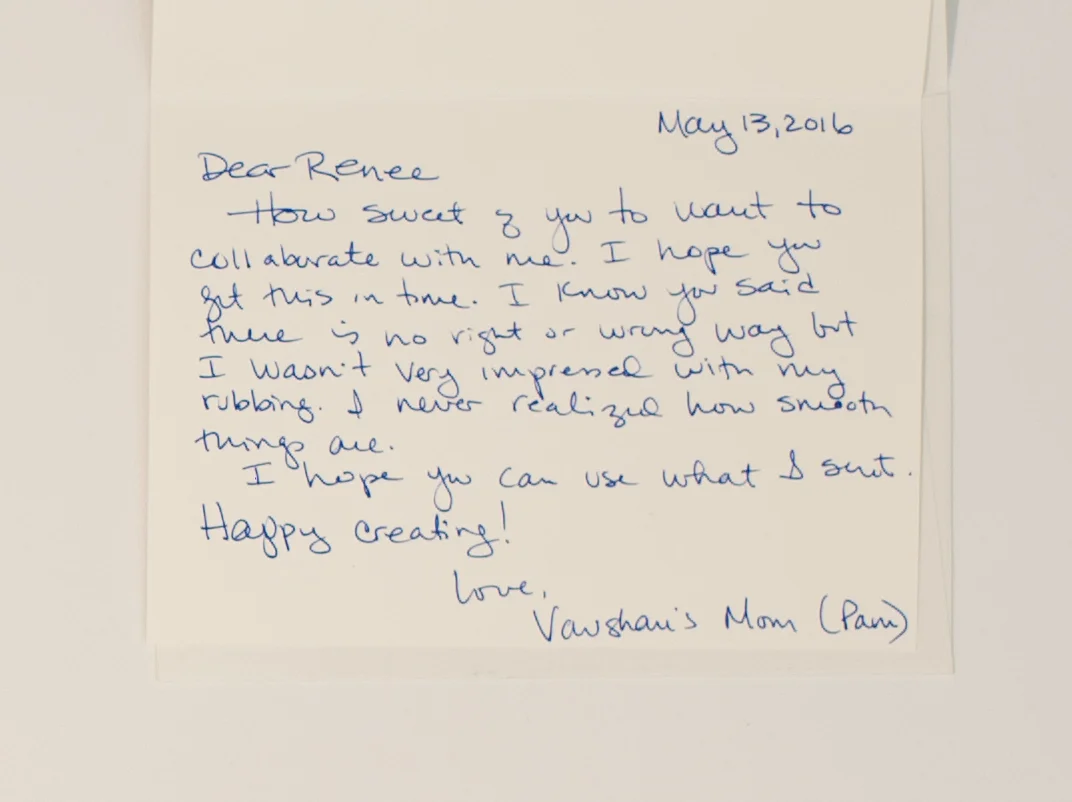 May 13, 2016
Dear Renee
How sweet of you to want to
collaborate with me. I hope you
get this in time. I know you said
there is no right or wrong way but
I wasn't very impressed with my
rubbing. I never realized how smooth
things are.
I hope you can use what I sent.
Happy creating!
Love,
Mom (Pam)